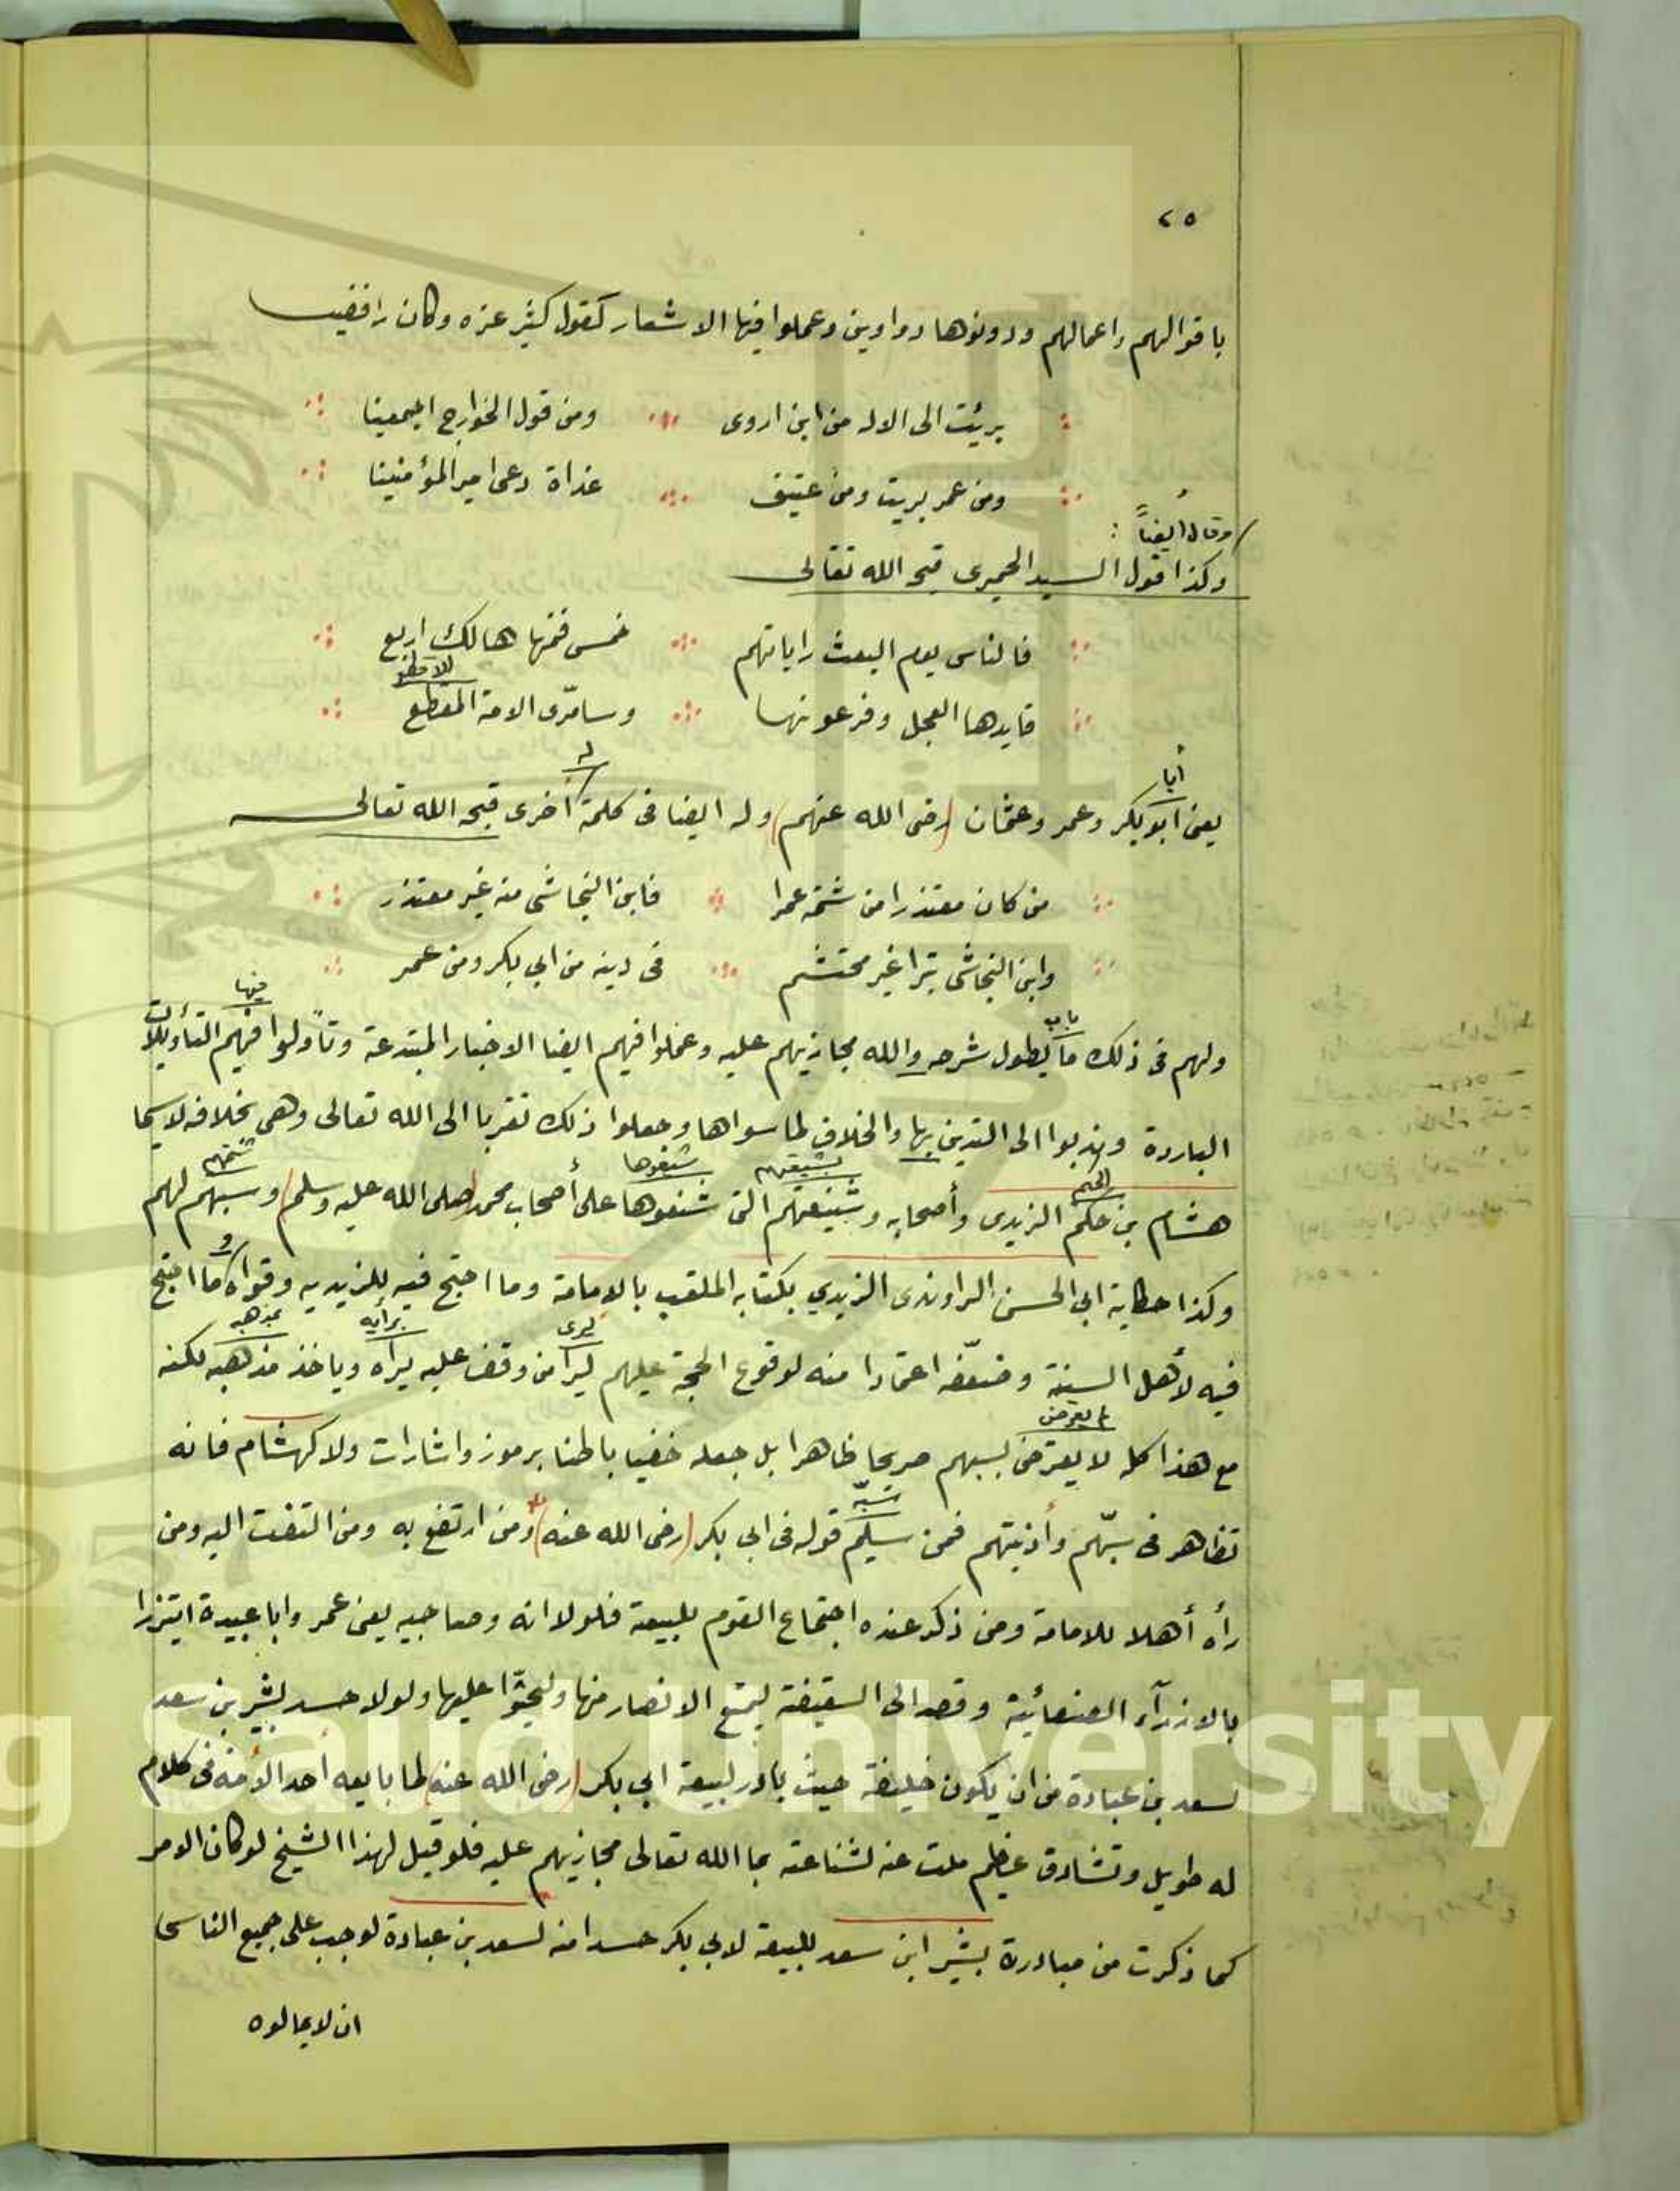 ٢٥
باقوالهم واعمالهم ودونوها دواوين وعملوا فيها الاشعار كقول كثير عزه وكان رافضيا
برئت الى الاله من ابن اروى ومن قول الخوارج اجمعينا
ومن عمر بريت ومن عتيق غداة دعى امير المؤمنينا
وقال أيضاً :
وكذا قول السيد الحميرى قبحه الله تعالى
فالناس يوم البعث راياتهم خمس فمنها هالك اربع
قايدها العجل وفرعونها وسامرّى الامة المفظع
أبا
له
يعنى ابو بكر وعمر وعثمان (رضى الله عنهم) وله ايضا فى كلمة أخرى قبحه الله تعالى
من كان معتذرا من شتمه عمرا فابن النجاشى منه غير معتذر
وابن النجاشى تبرا غير محتشم فى دينه من ابي بكر ومن عمر
باب فيها
ولهم فى ذلك ما يطول شرحه والله مجازيهم عليه وعملوا فيهم ايضا الاخبار المبتدعة وتأولوا فيهم التأويلات
الباردة وندبوا الى التدين بها والخلاف لما سواها وجعلوا ذلك تقربا الى الله تعالى وهى بخلافه لاسيما
الحكم بشيعتهم شنعوها شتمهم
هشام بن حكم الزيدى وأصحابه وشنيعتهم التى شنعوها على أصحاب محمد (صلى الله عليه وسلم) وسبهم لهم
وكذا حكاية ابي الحسن الراوندى الزيدي بكتابه الملقب بالامامة وما احتج فيه للزيديه وقواه وما احتج
ليرى برأيه بمذهبه
فيه لأهل السنة وضعّفه اعتمادا منه لوقوع الحجة عليهم ليرا من وقف عليه يراه وياخذ مذهبه لكنه
لم يعرض
مع هذا كله لا يعترض لسبهم صريحا ظاهرا بل جعله خفيا باطنا برموز واشارات ولا كهشام فانه
سبّه
تظاهر فى سبّهم وأذيتهم فمن سبهم قوله فى ابي بكر (رضى الله عنه) ومن ارتفع به ومن التفت اليه ومن
رأه أهلا للامامة ومن ذكر عنده اجتماع القوم للبيعة فلولا انه وصاحبيه يعنى عمر وابا عبيدة ايتزرا
بالازرآء الصنعائية وقصد الى السقيفة ليمنع الانصار منها وليحثوا عليها ولولا حسد بشير بن سعد
لسعد بن عبادة من ان يكون خليفة حيث بادر لبيعة ابي بكر (رضى الله عنه) لما بايعه أحد الأمة فى كلام
له طويل وتشادق عظيم ملت عنه لشناعته بما الله تعالى مجازيهم عليه فلو قيل لهذا الشيخ لو كان الامر
كما ذكرت من مبادرة بشير ابن سعد للبيعة لابي بكر حسدا منه لسعد بن عبادة لوجب على جميع الناس
ان لا يمالوه
g Saud University